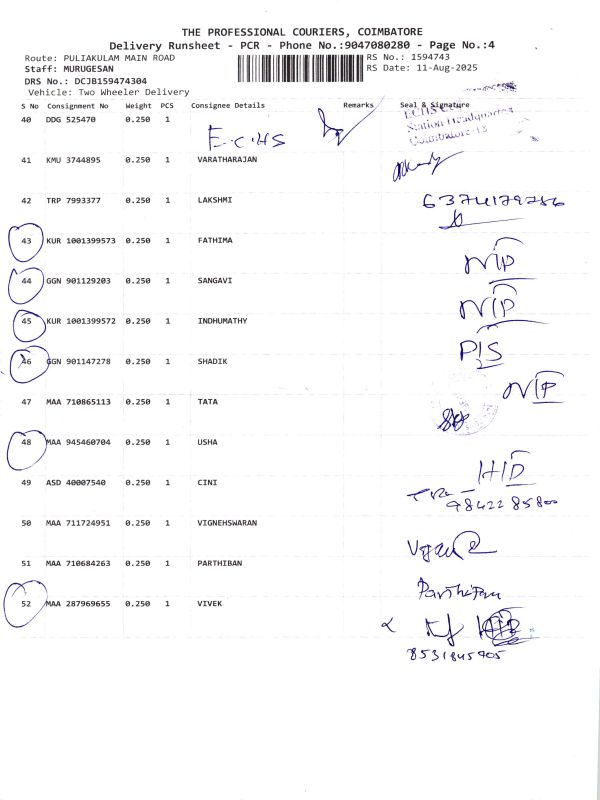 THE PROFESSIONAL COURIERS, COIMBATORE
Delivery Runsheet - PCR - Phone No.:9047080280 - Page No.:4
Route: PULIAKULAM MAIN ROAD RS No.: 1594743
Staff: MURUGESAN RS Date: 11-Aug-2025
DRS No.: DCJB159474304
Vehicle: Two Wheeler Delivery
S No Consignment No Weight PCS Consignee Details Remarks Seal & Signature
40 DDG 525470 0.250 1
E.C.HS
ECHS
Station Headquarters
Coimbatore-18
41 KMU 3744895 0.250 1 VARATHARAJAN
42 TRP 7993377 0.250 1 LAKSHMI 6374179786
43 KUR 1001399573 0.250 1 FATHIMA
N/P
44 GGN 901129203 0.250 1 SANGAVI
N/P
45 KUR 1001399572 0.250 1 INDHUMATHY
P/S
46 GGN 901147278 0.250 1 SHADIK
N/P
47 MAA 710865113 0.250 1 TATA
48 MAA 945460704 0.250 1 USHA
H/D
49 ASD 40007540 0.250 1 CINI
98422 85800
50 MAA 711724951 0.250 1 VIGNEHSWARAN
51 MAA 710684263 0.250 1 PARTHIBAN
Parthiban
52 MAA 287969655 0.250 1 VIVEK
8531845905